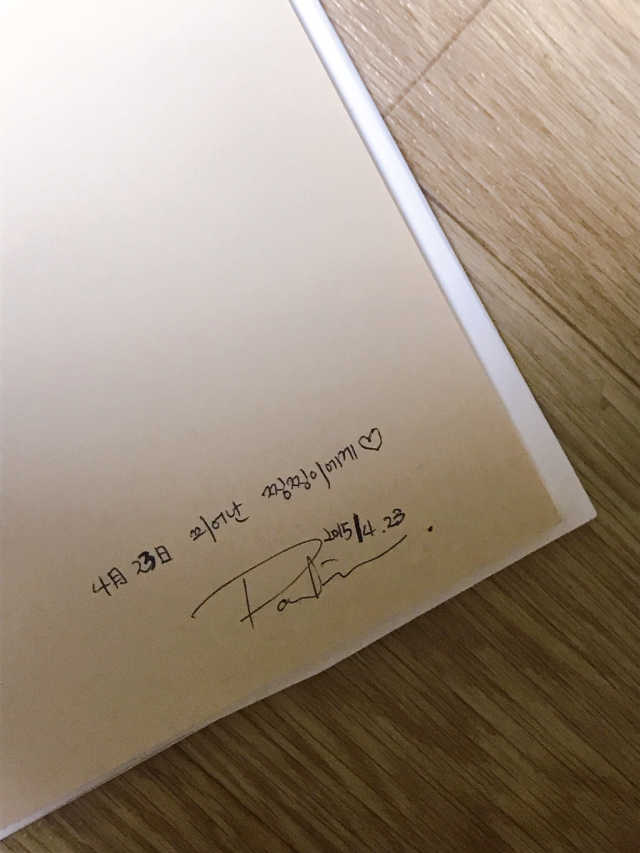 4月 23日 피어난 찡찡이에게♡
2015/4.23